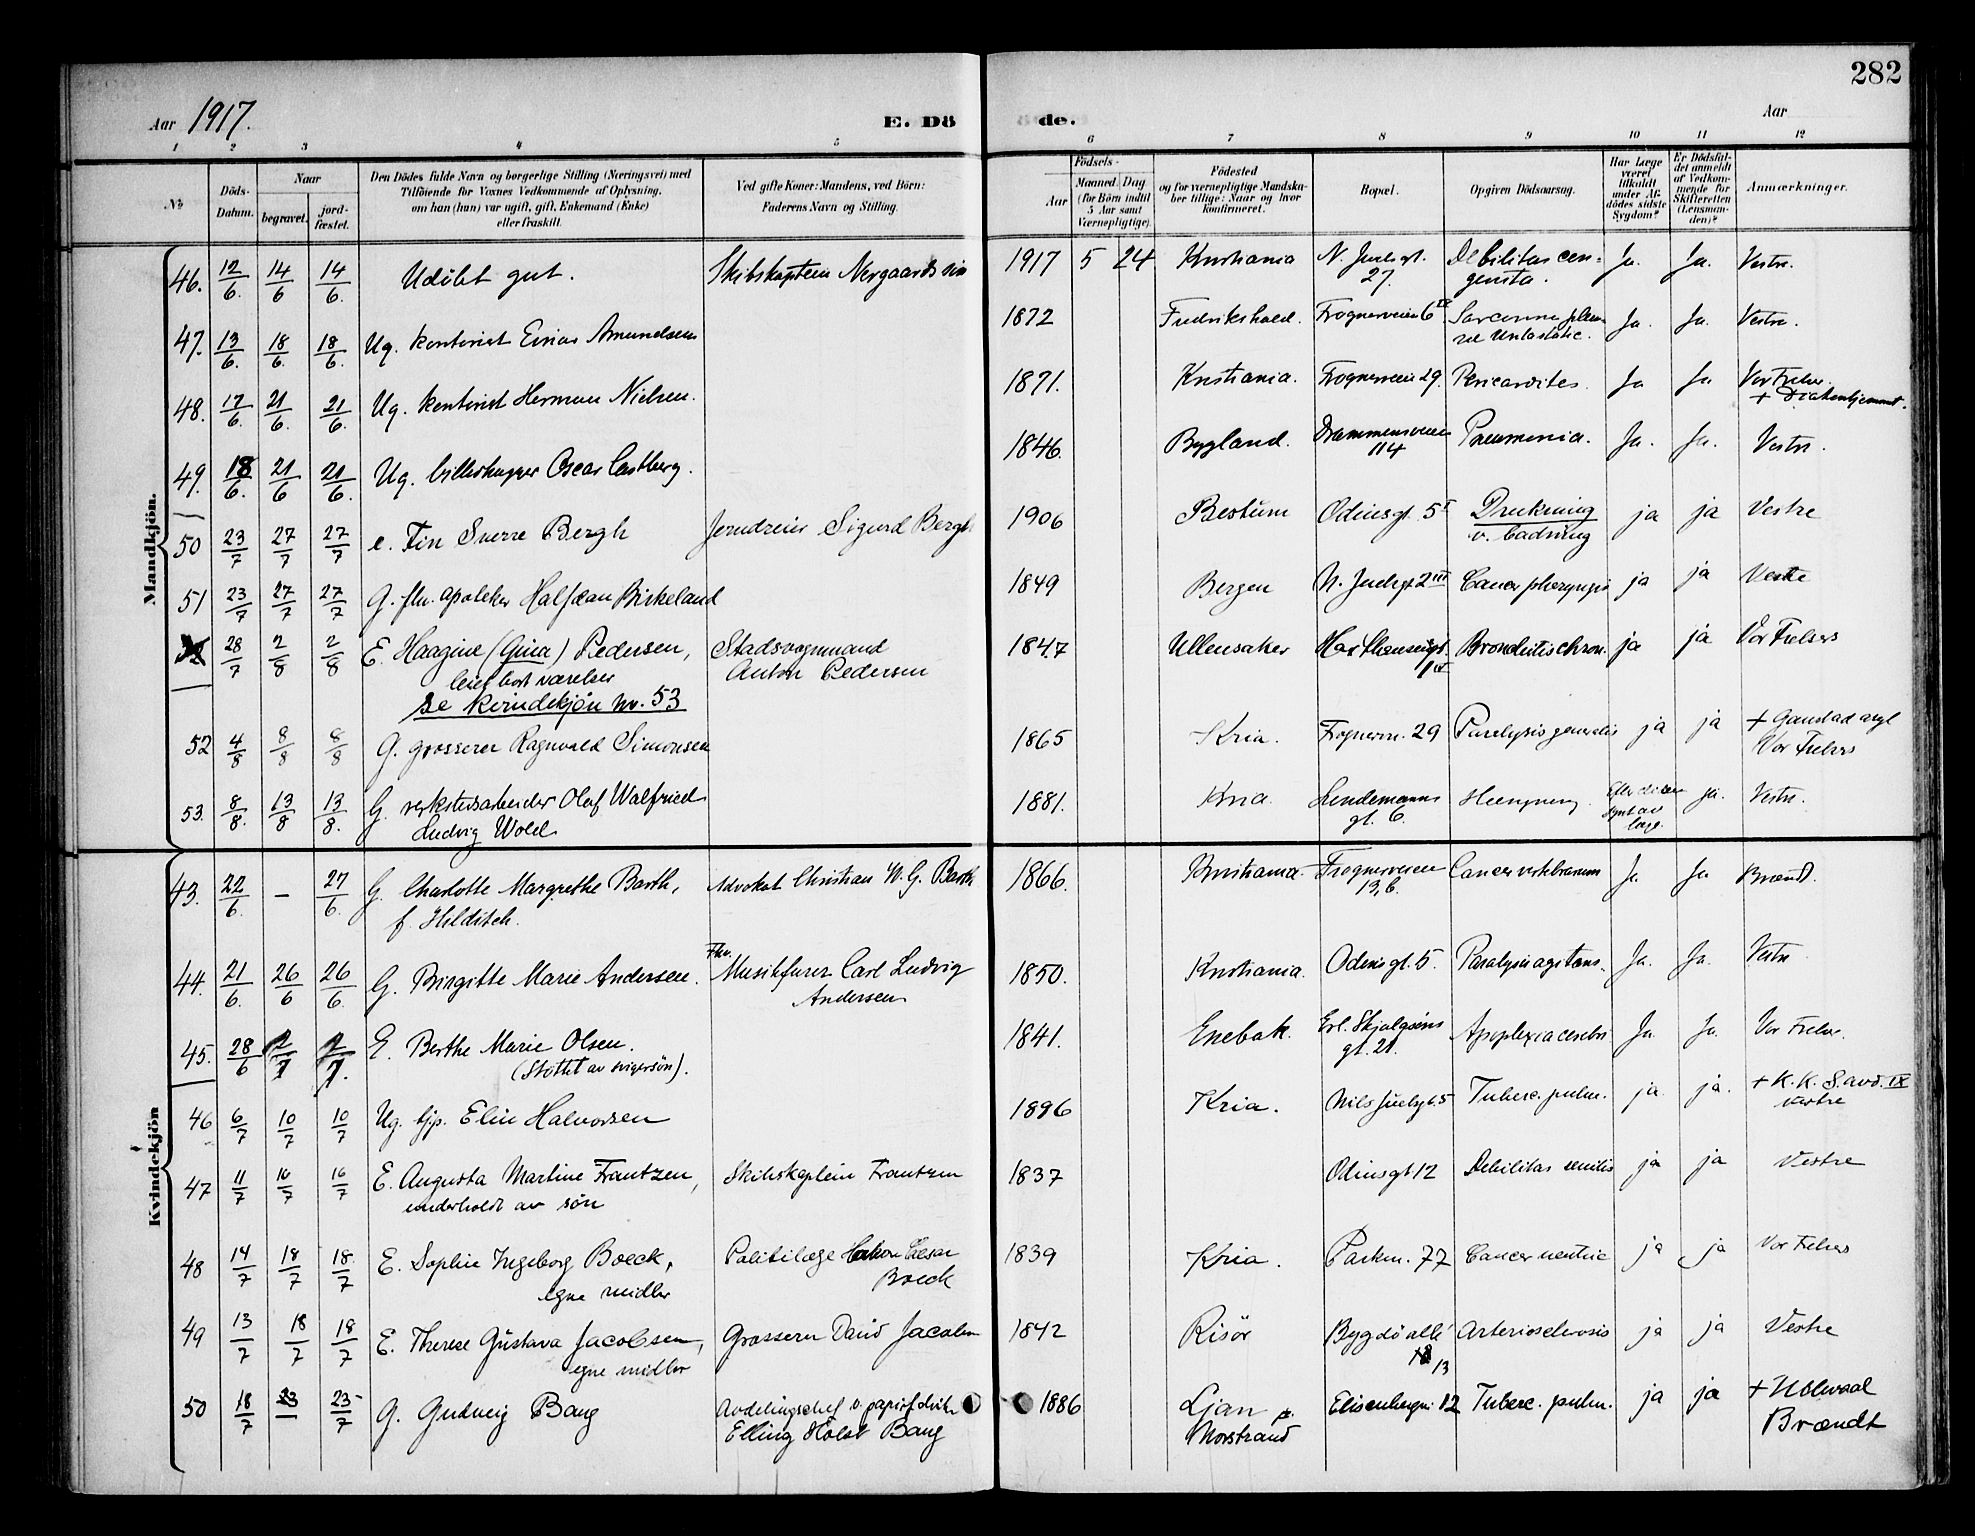 282
Aar 1917. E. Dö de. Aar
1 2 3 4 5 6 7 8 9 10 11 12
№ Döds-Datum. Naar begravet. jord-fæstet. Den Dödes fulde Navn og borgerlige Stilling (Næringsvei) med Tilföiende for Voxnes Vedkommende af Oplysning, om han (hun) var ugift, gift, Enkemand (Enke) eller fraskilt. Ved gifte Koner: Mandens, ved Börn: Faderens Navn og Stilling. Födsels- Aar Maaned Dag (for Börn indtil 5 Aar samt Værnepligtige). Födested og for værnepligtige Mandskaber tillige: Naar og hvor konfirmeret. Bopæl. Opgiven Dödsaarsag. Har Læge været tilkaldt under Afdödes sidste Sygdom? Er Dödsfaldet anmeldt af Vedkommende for Skifteretten (Lensmanden)? Anmærkninger.
Mandkjön.
46. 12/6. 14/6 14/6. Udöbt gut. Skibskaptein Nergaards sön 1917 5 24 Kristiania N. Juels gt. 27. Debilitas congenita. Ja. Ja. Vestre.
47. 13/6. 18/6. 18/6. Ug. kontorist Einar Amundsen 1872 Fredrikshald. Frognerveien 6 Sarcoma Ja. Ja. Vestre.
48. 17/6. 21/6. 21/6. Ug. kontorist Herman Nielsen. 1871. Kristiania. Frognerveien 29. Pericarditis. Ja Ja Vor Frelser. + Diakonhjemmet.
49. 18/6. 21/6 21/6. Ug. billedhugger Oscar Castberg. 1846. Bygland. Drammensveien 114 Pneumonia. Ja. Ja. Vestre.
50 23/7 27/7 27/7 e. Fin Sverre Bergh Sigurd Bergh 1906 Bestum Odinsgt. 5 I Drukning v. badning ja ja Vestre
51 23/7 27/7 27/7 G. fhv. apoteker Halfdan Birkeland 1849 Bergen N. Juelsgt 2 III Cancer pharyngis ja ja Vestre
28/7 2/8 2/8 E. Haagine (Gina) Pedersen, Stadsvognmand 1847 Ullensaker Bronchitis chron. ja ja Vor Frelsers
leiet bort værelser Anton Pedersen
se kvindekjön nr. 53
52 4/8 8/8 8/8 G. grosserer Ragnvald Simonsen 1865 Kria. Frognerv. 29 Paralysis generalis ja ja + Gaustad asyl Vor Frelsers
53. 8/8. 13/8 13/8. G. verkstedsarbeider Olaf Walfried 1881. Kria. Lindemans gt. 6. Hængning. ja. Vestre.
Ludvig Wold
Kvindekjön
43. 22/6. – 27/6. G. Charlotte Margrethe Barth, Advokat Christian W. G. Barth 1866. Kristiania. Frognerveien 13, b. Cancer vertebrarum Ja Ja Brændt.
f. Hilditch.
44. 21/6. 26/6 26/6. G. Birgitte Marie Andersen. Fhv. Musikfurer Carl Ludvig 1850. Kristiania. Odinsgt. 5. Paralysis agitans. Ja. Ja. Vestre
Andersen
45. 28/6 2/7 2/7. E. Berthe Marie Olsen. 1841. Enebak. Erl. Skjalgsöns gt. 21. Apoplexia cerebri Ja. Ja. Vor Frelser.
(Stöttet av svigersön).
46 6/7 10/7 10/7 Ug. hjp. Elin Halvorsen 1896 Kria. Nils Juelsgt 5 Tuberc. pulm. ja ja. + K. K. S. avd. IX Vestre
47 11/7 16/7 16/7 E. Augusta Martine Frantzen, Skibskaptein Frantzen 1837 Odinsgt 12 Debilitas senilis ja ja Vestre
underholdt av sön
48 14/7 18/7 18/7 E. Sophie Ingeborg Boeck, Politilæge Cæsar 1839 Kria. Parkv. 77 Cancer ventric ja ja Vor Frelsers
egne midler Boeck
49 13/7 18/7 18/7 E. Therese Gustava Jacobsen, Grosserer David Jacobsen 1842 Risör Bygdö allé 13 Arteriosclerosis ja ja Vestre
egne midler
50 18/7 23 23/7 G. Gudveig Bang Avdelingschef v. papirfabrik 1886 Ljan pr. Elisenbergv. 12 Tuberc. pulm. ja ja +
Elling Holst Bang Norstrand Brændt